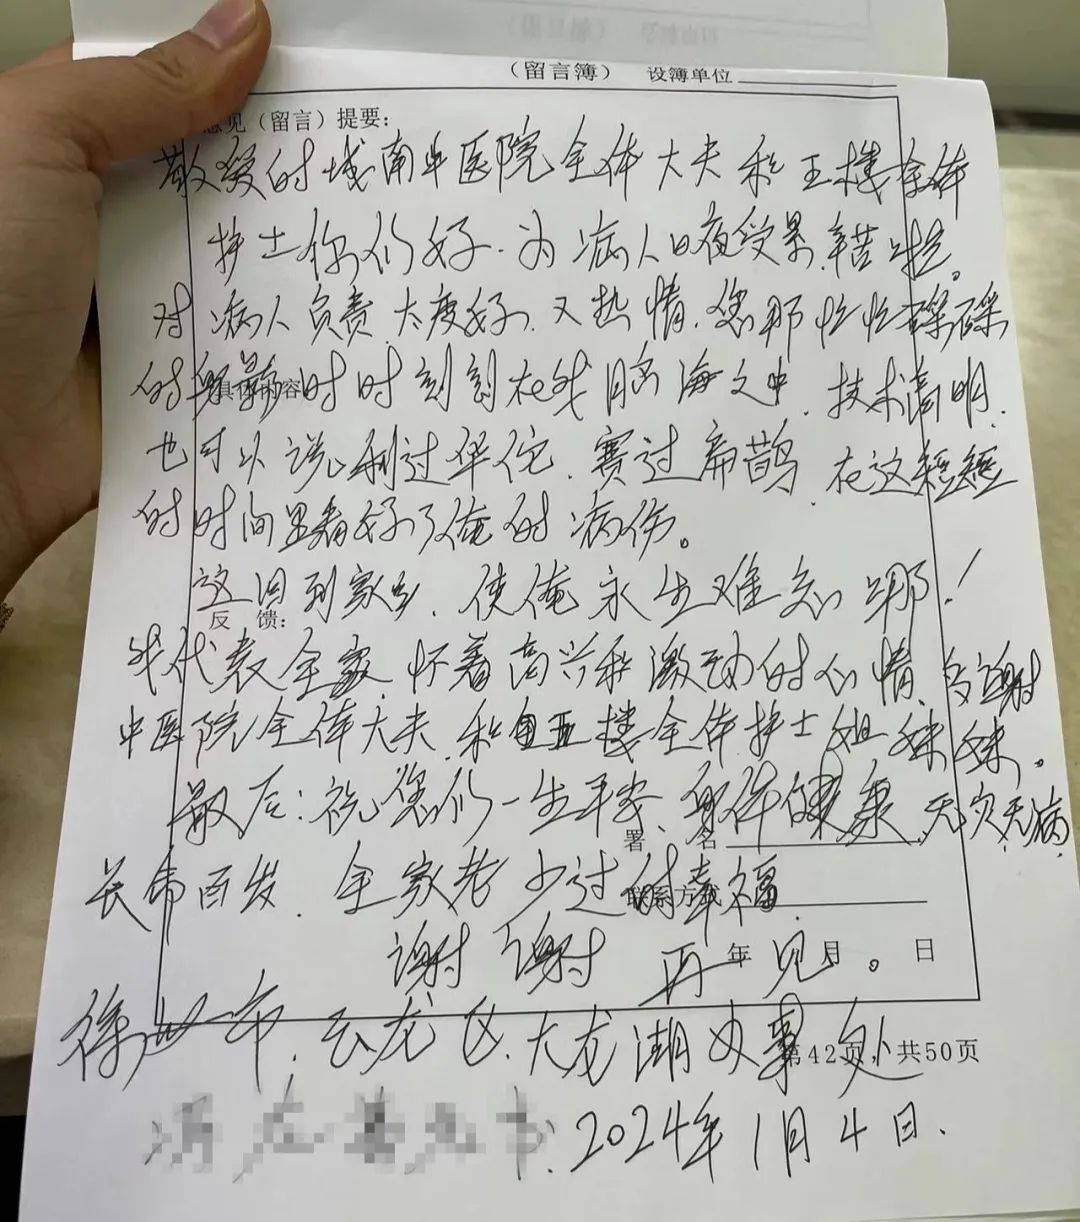 （留言簿） 设簿单位
意见（留言）提要：
敬爱的城南中医院全体大夫和五楼全体
护士你们好.为病人日夜受累.辛苦啦。
对病人负责.太度好.又热情.您那忙忙碌碌
的身影时时刻刻在我脑海之中.技术清明.
具体内容
也可以说利过华佗.赛过扁鹊.在这短短
的时间里看好了俺的病伤。
这回到家乡.使俺永生难忘哪！
反 馈：
我代表全家.怀着高兴和激动的心情.多谢
中医院全体大夫.和五楼全体护士姐妹妹。
最后：祝您们一生平安.身体健康.无灾无病.
署 名
长命百发.全家老少过的幸福.
联系方式
谢谢 再见。
年 月 日
徐州市.云龙区.大龙湖办事处
第42页，共50页
2024年1月4日.